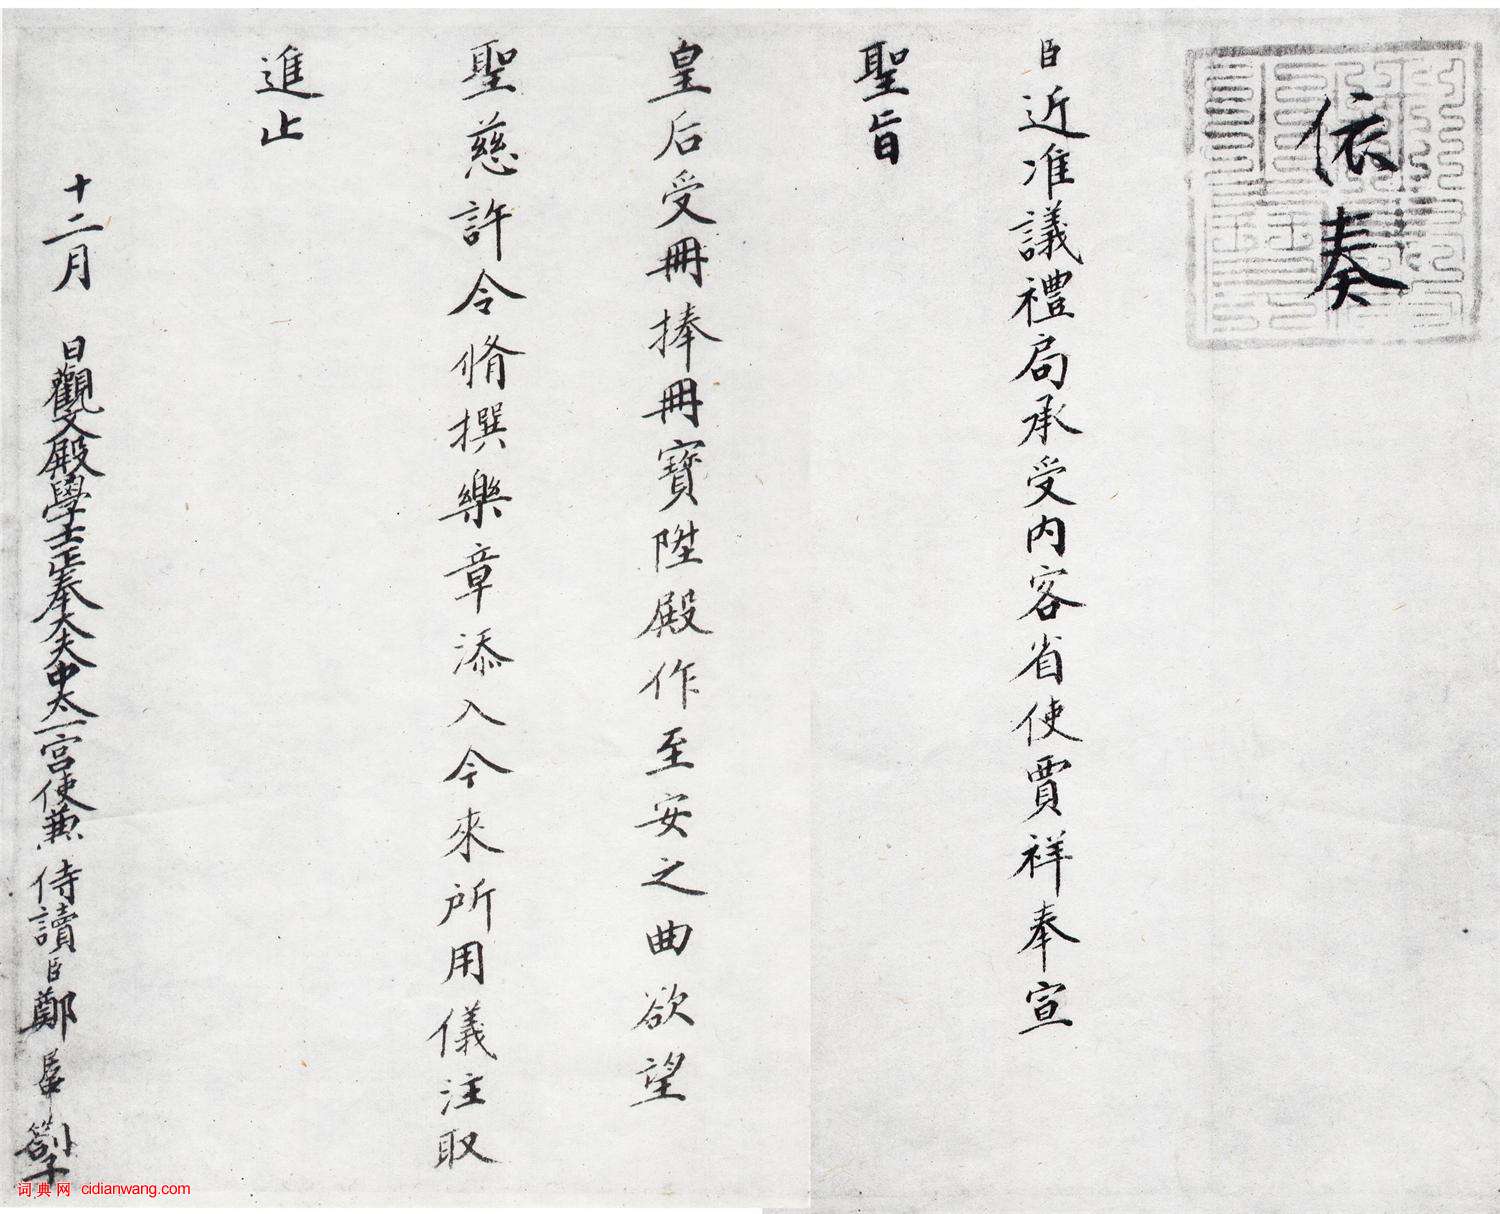 依奏
臣近准議禮局承受内客省使賈祥奉宣
聖旨
皇后受冊捧冊寶陞殿作至安之曲欲望
聖慈許令脩撰樂章添入今來所用儀注取
進止
十二月 日觀文殿學士正奉大夫中太一宮使兼侍讀臣鄭居中劄子
词典网 cidianwang.com